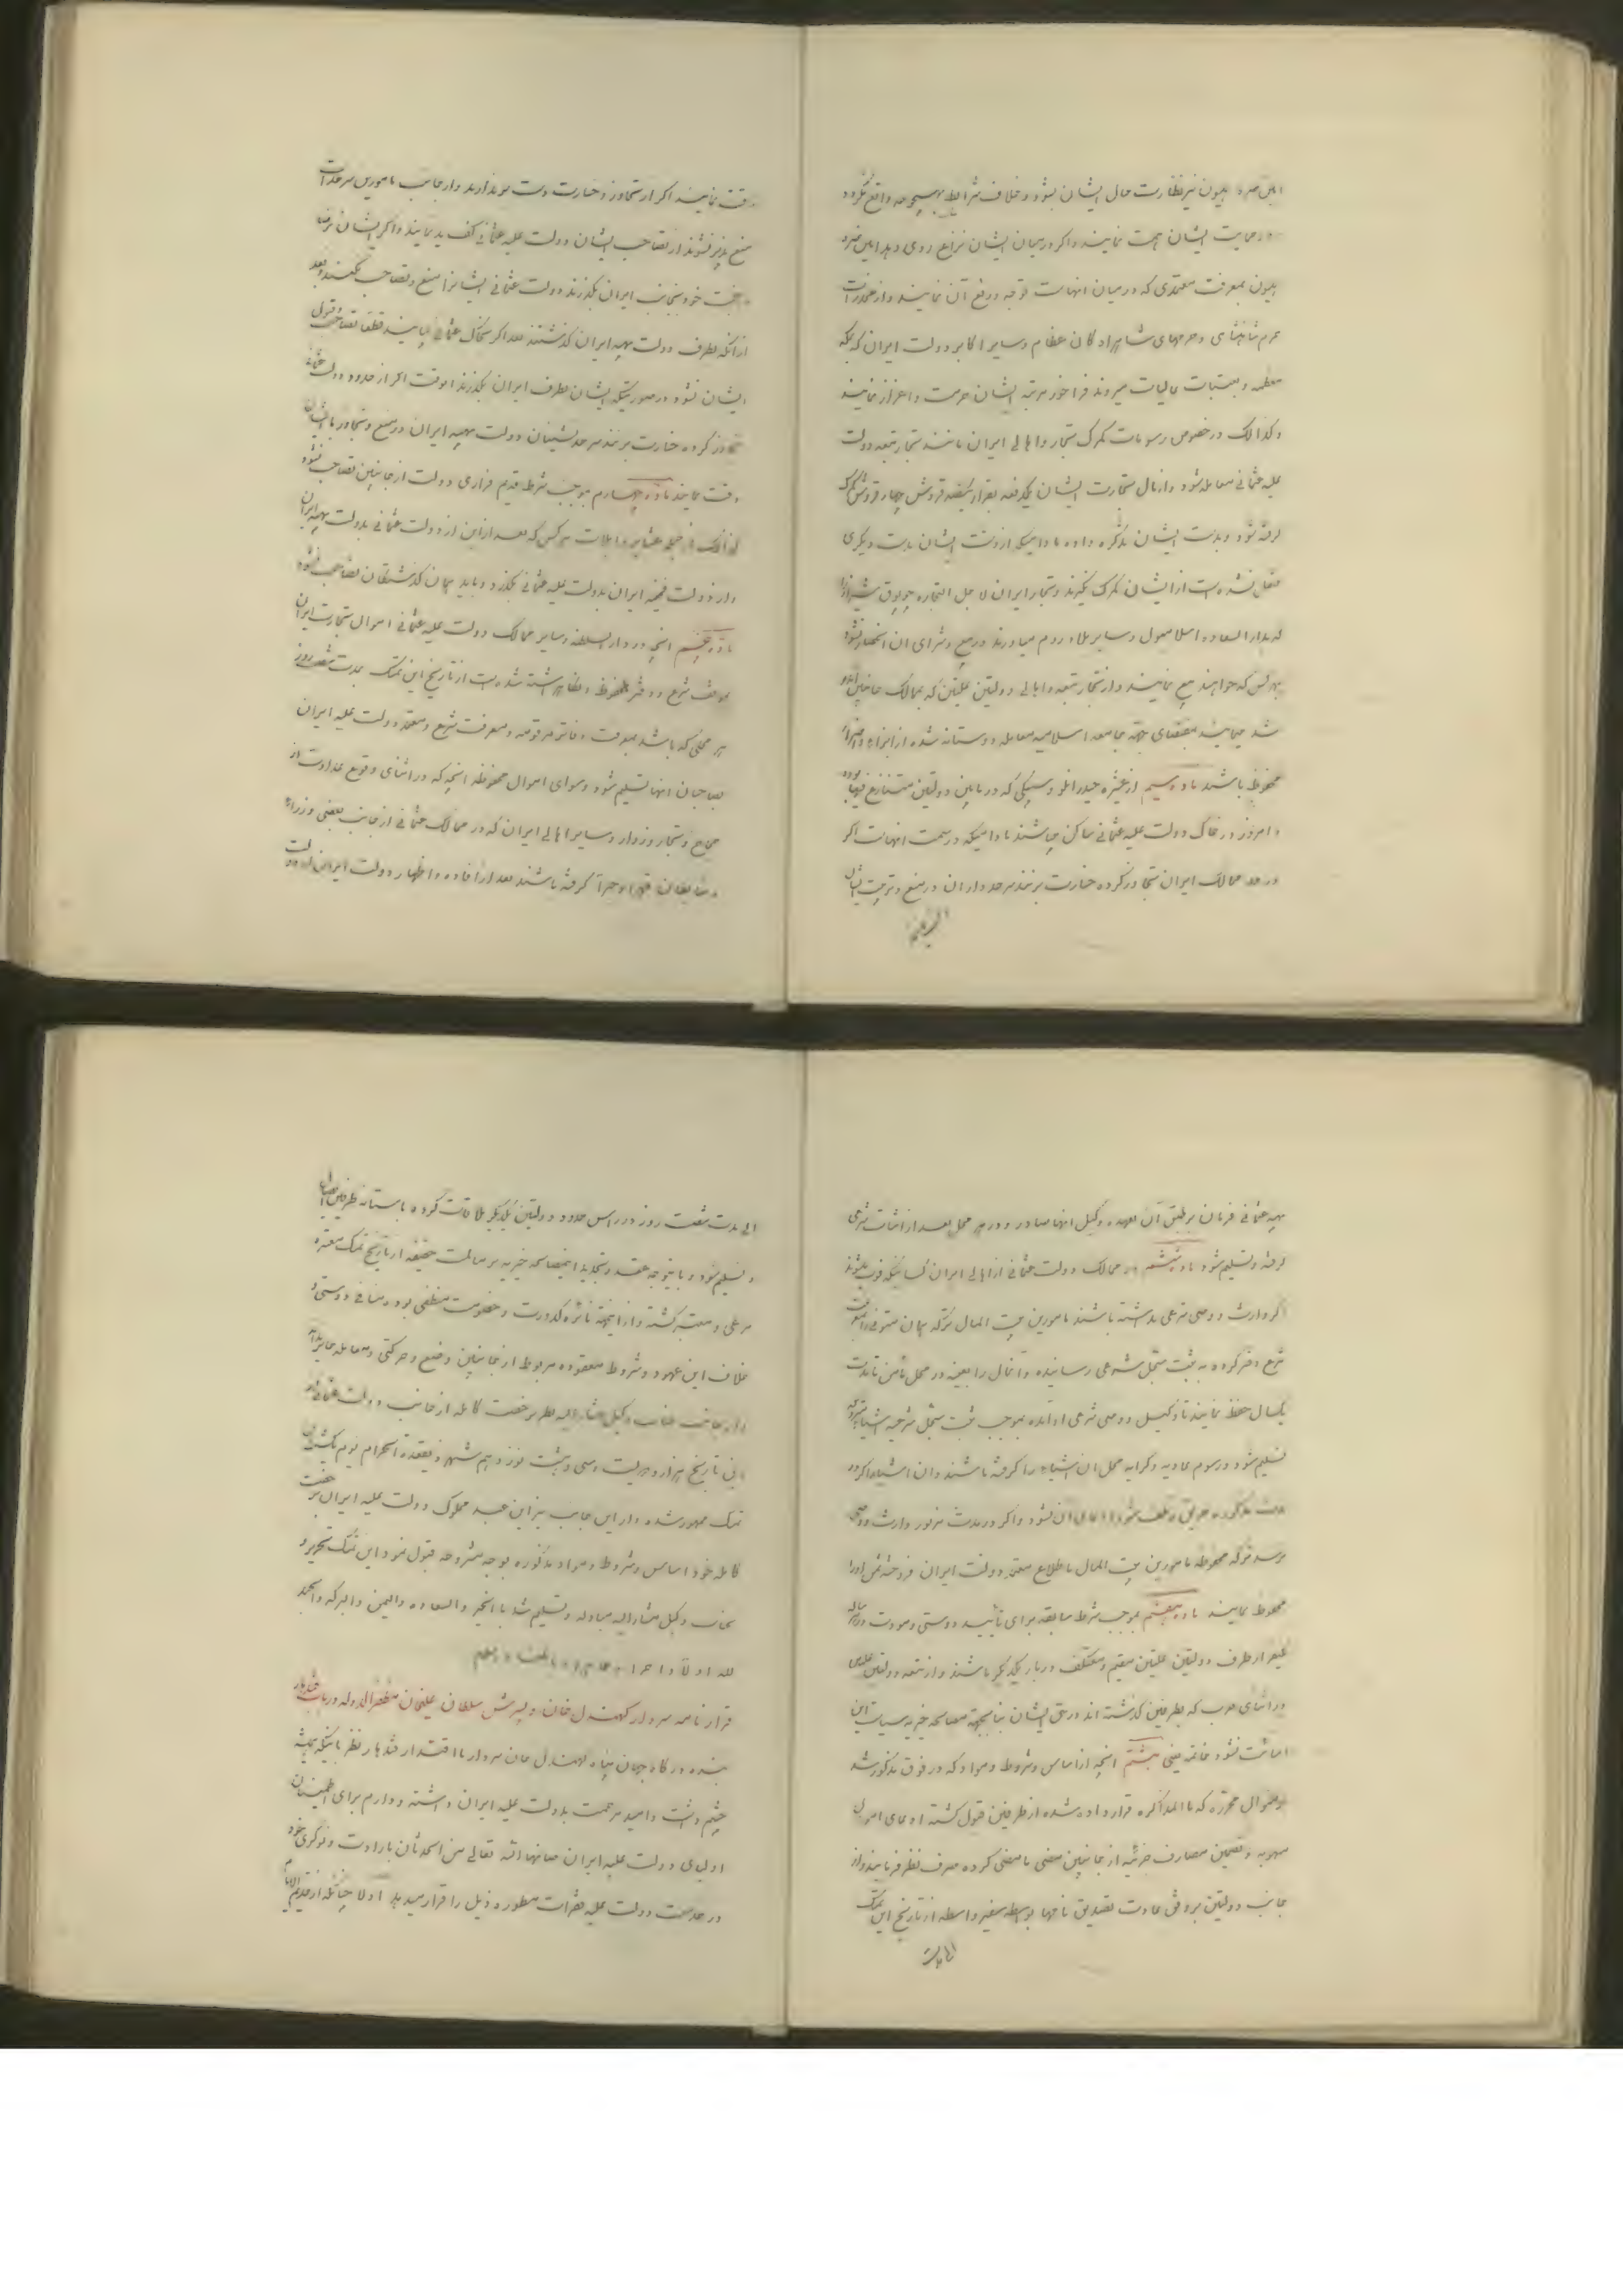 امین صره همیون نیز نظارت حال ایشان بشود و خلاف شرایط بهیچوجه واقع نگردد
و در حمایت ایشان همت نمایند و اگر در میان ایشان نزاعی روی دهد امین صره
همیون بمعرفت معتمدی که در میان آنهاست توجه و رفع آن نمایند و از مخدرات
حرم شاهنشاهی و حرمهای شاهزادگان عظام و سایر اکابر دولت ایران که بمکه
معظمه و بعتبات عالیات میروند فراخور مرتبه ایشان حرمت و اعزاز نمایند
و کذالک در خصوص رسومات گمرک تجار و اهالی ایران مانند تجار تبعه دولت
علیه عثمانی معامله شود و از مال تجارت ایشان یکدفعه بقرار یکصد قروش چهار قروش گمرک
گرفته شود و بدست ایشان تذکره داده مادامیکه از دست ایشان بدست دیگری
منتقل نشده است از ایشان گمرک نگیرند و تجار ایران لاجل التجاره چوبوق شیراز
که بدار السعاده اسلامبول و سایر بلاد روم میاورند در بیع و شرای آن انحصار نشود
بهر کس که خواهند بیع نمایند و از تجار تبعه و اهالی دولتین علیتین که بممالک جانبین
شد میمایند بمقتضای جهة جامعه اسلامیه معامله دوستانه شده از ایذاء و اضرار
محفوظ باشند ماده سیم از عشیره حیدرانلو و سیبکی که در مابین دولتین متنازع فیها بوده
و امروز در خاک دولت علیه عثمانی ساکن میباشند مادامیکه در سمت آنهاست اگر
در حد ممالک ایران تجاوز کرده خسارت برسانند سرحدداران در منع و تربیت ایشان
دقت نمایند اگر از تجاوز و خسارت دست بر ندارند و از جانب مامورین سرحدات
منع پذیر نشوند از تصاحب ایشان دولت علیه عثمانی کف ید نمایند و اگر ایشان برضا
و رغبت خود بجانب ایران بگذرند دولت عثمانی ایشانرا منع و تصاحب نکنند و بعد
از آنکه بطرف دولت بهیه ایران گذشتند بعد اگر بخاک عثمانی بیایند قطعا تصاحب و قبول
ایشان نشود و در صورتیکه ایشان بطرف ایران بگذرند آنوقت اگر از حدود دولت عثمانی
تجاوز کرده خسارت برسانند سرحدنشینان دولت بهیه ایران در منع و تجاوز با ایشان
دقت نمایند ماده چهارم بموجب شرط قدیم فراری دولت از جانبین تصاحب نشود
کذالک از جمله عشایر و ایلات هر کس که بعد از این از دولت عثمانی بدولت بهیه ایران
و از دولت فخیمه ایران بدولت علیه عثمانی بگذرد و باید همان گذشتگان تصاحب نشود
ماده پنجم آنچه در دار السلطنه و سایر ممالک دولت علیه عثمانی اموال تجارت ایران
بموقف شرع و دفتر محفوظ و نگاهداشته شده است از تاریخ این تمسک بمدت شصت روز
هر محلی که باشد بموجب دفاتر مرقومه و معرفت شرع و معتمد دولت علیه ایران
بصاحبان آنها تسلیم شود و سوای اموال محفوظه آنچه که در اثنای وقوع عداوت از
حجاج و تجار و زوار و سایر اهالی ایران که در ممالک عثمانی از جانب بعضی وزراء
و ضابطان قهرا و جبرا گرفته باشند بعد از افاده و اظهار دولت ایران از دولت
بهیه عثمانی فرمان بر طبق آن بعهده وکیل آنها صادر و در هر محل بعد از اثبات شرعی
گرفته و تسلیم شود ماده ششم در ممالک دولت عثمانی از اهالی ایران کسانیکه فوت میشوند
اگر وارث و وصی شرعی نداشته باشند مامورین بیت المال ترکه همان متوفی را بمعرفت
شرع دفتر کرده به ثبت سجل شرعی رسانیده و آنمال را بعینه در محل مأمن تا مدت
یکسال حفظ نمایند تا وکیل و وصی شرعی او آمده بموجب ثبت سجل شرعیه اشیاء متروکه
تسلیم شود و رسوم عادیه و کرایه محل آن اشیاء را گرفته باشند و آن اشیاء اگر در
مدت مذکوره حریق و تلف شود ادعای آن نشود و اگر در مدت مزبور وارث و وصی
نرسد ترکه محفوظه مامورین بیت المال باطلاع معتمد دولت ایران فروخته ثمن او را
محفوظ نمایند ماده هفتم بموجب شرط سابقه برای تأیید دوستی و مودت در هر سه سال
سفیر از طرف دولتین علیتین مقیم و معتکف دربار یکدیگر باشند و از تبعه دولتین علیتین
در اثنای حرب که بطرفین گذشته اند در حق ایشان بنا بجهة مصالحه خیریه سیاست این
اساءت نشود خاتمه یعنی هشتم آنچه از اساس و شروط و مواد که در فوق مذکور شد
و بمنوال محرره که با المذاکره قرار داده شده از طرفین قبول گشته ادعای اموال
منهوبه و تضمین مصارف حربیه از جانبین مضی ما مضی کرده صرف نظر فرمایند و از
جانب دولتین بر وفق عادت تصدیق نامها بواسطه سفیر واسطه از تاریخ این تمسک
الی مدت شصت روز در راس حدود دولتین یکدیگر ملاقات کرده باستانه طرفین ایصال
و تسلیم شود و باینوجه عقد و تجدید اینمصالحه خیریه بر مسالمت حقیقه از تاریخ تمسک معتبره
مرعی و معتبر گشته و از اینجهة نائره کدورت و خصومت منطفی بود و منافی دوستی و
خلاف این عهود و شروط معقوده مربوط از جانبین وضع و حرکتی و معامله جایز
از جانب جناب وکیل مشار الیه نظر برخصت کامله از جانب دولت عثمانی
تاریخ هزار و دویست و سی و هشت نوزدهم شهر ذیقعدة الحرام یوم یکشنبه
تمسک ممهور شده و از این جانب نیز این عبد مملوک دولت علیه ایران برخصت
کامله خود اساس و شروط و مواد مذکوره بوجه مشروحه قبول نمود این تمسک تحریر و
بجانب وکیل مشار الیه مبادله و تسلیم شد با الخیر و السعاده و الیمن و البرکه و الحمد
لله اولا و آخرا
قرارنامه سردار کهندل خان و پسرش سلطان علیخان مظفر الدوله در باب قندهار
بنده درگاه جهان پناه کهندل خان سردار با اقتدار قندهار نظر باینکه همیشه
چشم داشت و امید مرحمت بدولت علیه ایران داشته و دارم برای اطمینان
اولیای دولت علیه ایران صانها الله تعالی من الحدثان بارادت و نوکری خود
در خدمت دولت علیه فقرات مسطوره ذیل را قرار میدهد اولا چنانکه از قدیم الایام